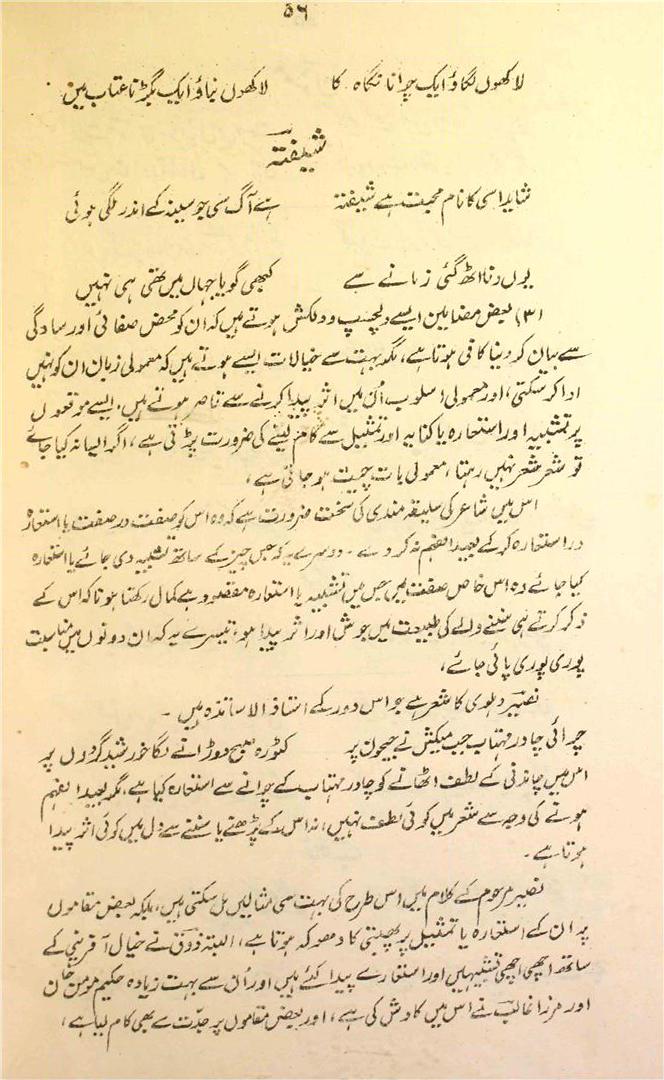 ۵۶
لاکھوں لگاؤ ایک چرانا نگاہ کا لاکھوں بناؤ ایک بگڑنا عتاب میں
شیفتہ
شاید اسی کا نام محبت ہے شیفتہ ہے آگ سی جو سینہ کے اندر لگی ہوئی
یوں وفا اٹھ گئی زمانے سے کبھی گویا جہاں میں تھی ہی نہیں
(۳) بعض مضامین ایسے دلچسپ و دلکش ہوتے ہیں کہ ان کو محض صفائی اور سادگی
سے بیان کر دینا کافی ہوتا ہے، مگر بہت سے خیالات ایسے ہوتے ہیں کہ معمولی زبان ان کو نہیں
ادا کر سکتی، اور معمولی اسلوب اُن میں اثر پیدا کرنے سے قاصر ہوتے ہیں، ایسے موقعوں
پر تشبیہ اور استعارہ یا کنایہ اور تمثیل سے کام لینے کی ضرورت پڑتی ہے، اگر ایسا نہ کیا جائے
تو شعر شعر نہیں رہتا، معمولی بات چیت ہو جاتی ہے،
اس میں شاعر کی سلیقہ مندی کی سخت ضرورت ہے کہ وہ اس کو صفت در صفت یا استعارہ
در استعارہ کر کے بعید الفہم نہ کر دے ۔ دوسرے یہ کہ جس چیز کے ساتھ تشبیہ دی جائے یا استعارہ
کیا جائے وہ اس خاص صفت میں جس میں تشبیہ یا استعارہ مقصود ہے کمال رکھتا ہو تا کہ اس کے
ذکر کرتے ہی سننے والے کی طبیعت میں جوش اور اثر پیدا ہو، تیسرے یہ کہ ان دونوں میں مناسبت
پوری پوری پائی جائے،
نصیر دہلوی کا شعر ہے جو اس دور کے استاذ الاساتذہ ہیں ۔
چرائی چادر مہتاب جب میکش نے جیحوں پر کٹورہ صبح دوڑانے لگا خورشید گردوں پر
اس میں چاندنی کے لطف اٹھانے کو چادر مہتاب کے چرانے سے استعارہ کیا ہے، مگر بعید الفہم
ہونے کی وجہ سے شعر میں کوئی لطف نہیں، نہ اس کے پڑھنے یا سننے سے دل میں کوئی اثر پیدا
ہوتا ہے ۔
نصیر مرحوم کے کلام میں اس طرح کی بہت سی مثالیں مل سکتی ہیں، بلکہ بعض مقاموں
پر ان کے استعارہ یا تمثیل پر پھبتی کا دھوکہ ہوتا ہے، البتہ ذوق نے خیال آفرینی کے
ساتھ اچھی اچھی تشبیہیں اور استعارے پیدا کئے ہیں اور اُن سے بہت زیادہ حکیم مومن خان
اور مرزا غالب نے اس میں کاوش کی ہے، اور بعض مقاموں پر جدت سے بھی کام لیا ہے،